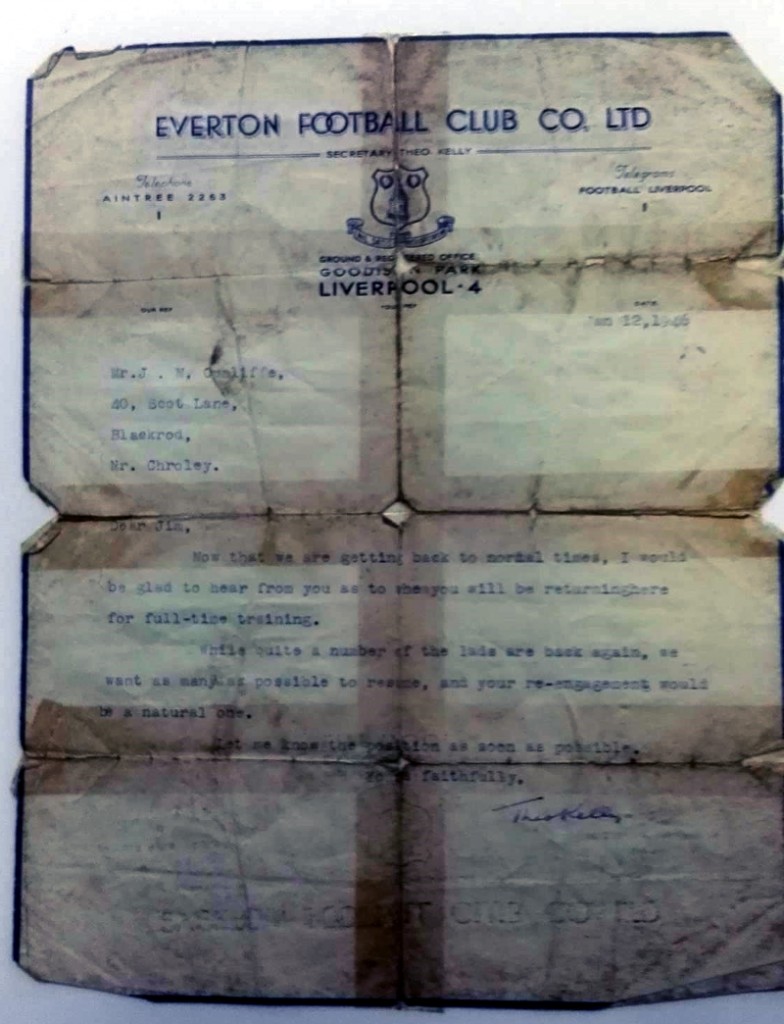 EVERTON FOOTBALL CLUB CO. LTD
SECRETARY THEO KELLY
Telephone
AINTREE 2263
Telegrams
FOOTBALL LIVERPOOL
GROUND & REGISTERED OFFICE
GOODISON PARK
LIVERPOOL·4
OUR REF
YOUR REF
DATE
Jan 12,1946
Mr.J . N. Cunliffe,
40, Scot Lane,
Blackrod,
Nr. Chroley.
Dear Jim,
Now that we are getting back to normal times, I would
be glad to hear from you as to whenyou will be returninghere
for full-time training.
While quite a number of the lads are back again, we
want as many as possible to resume, and your re-engagement would
be a natural one.
Let me know the position as soon as possible.
faithfully,
Theo Kelly